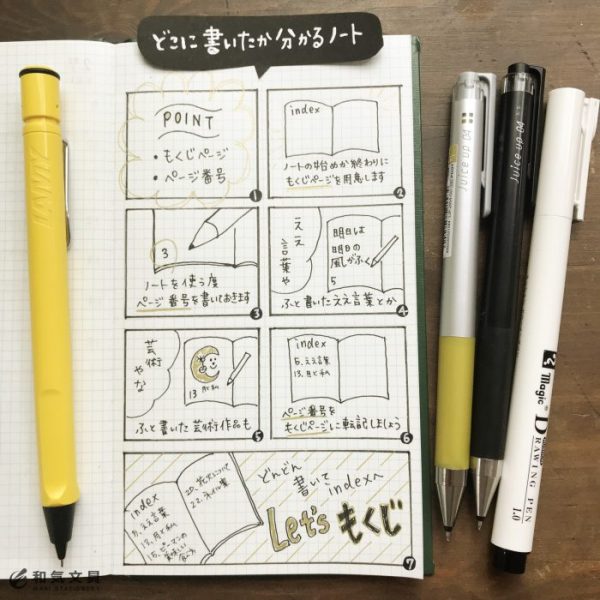 どこに書いたか分かるノート
POINT
・もくじページ
・ページ番号
1
index
ノートの始めか終わりに
もくじページを用意します
2
3
ノートを使う度
ページ番号を書いておきます
3
ええ
言葉や
明日は
明日の
風がふく
5
ふと書いたええ言葉とか
4
芸術
やな
13 月と私
ふと書いた芸術作品も
5
index
5.ええ言葉
13.月と私
ページ番号を
もくじページに転記しましょう
6
index
5.ええ言葉
13.月と私
15.ピーマンの
美味しい
食べ方
どんどん
書いて
indexへ
Let's もくじ
7
LAMY
Juice up 04
Juice up 04
Magic
DRAWING PEN
1.0
和気文具
WAKI STATIONERY